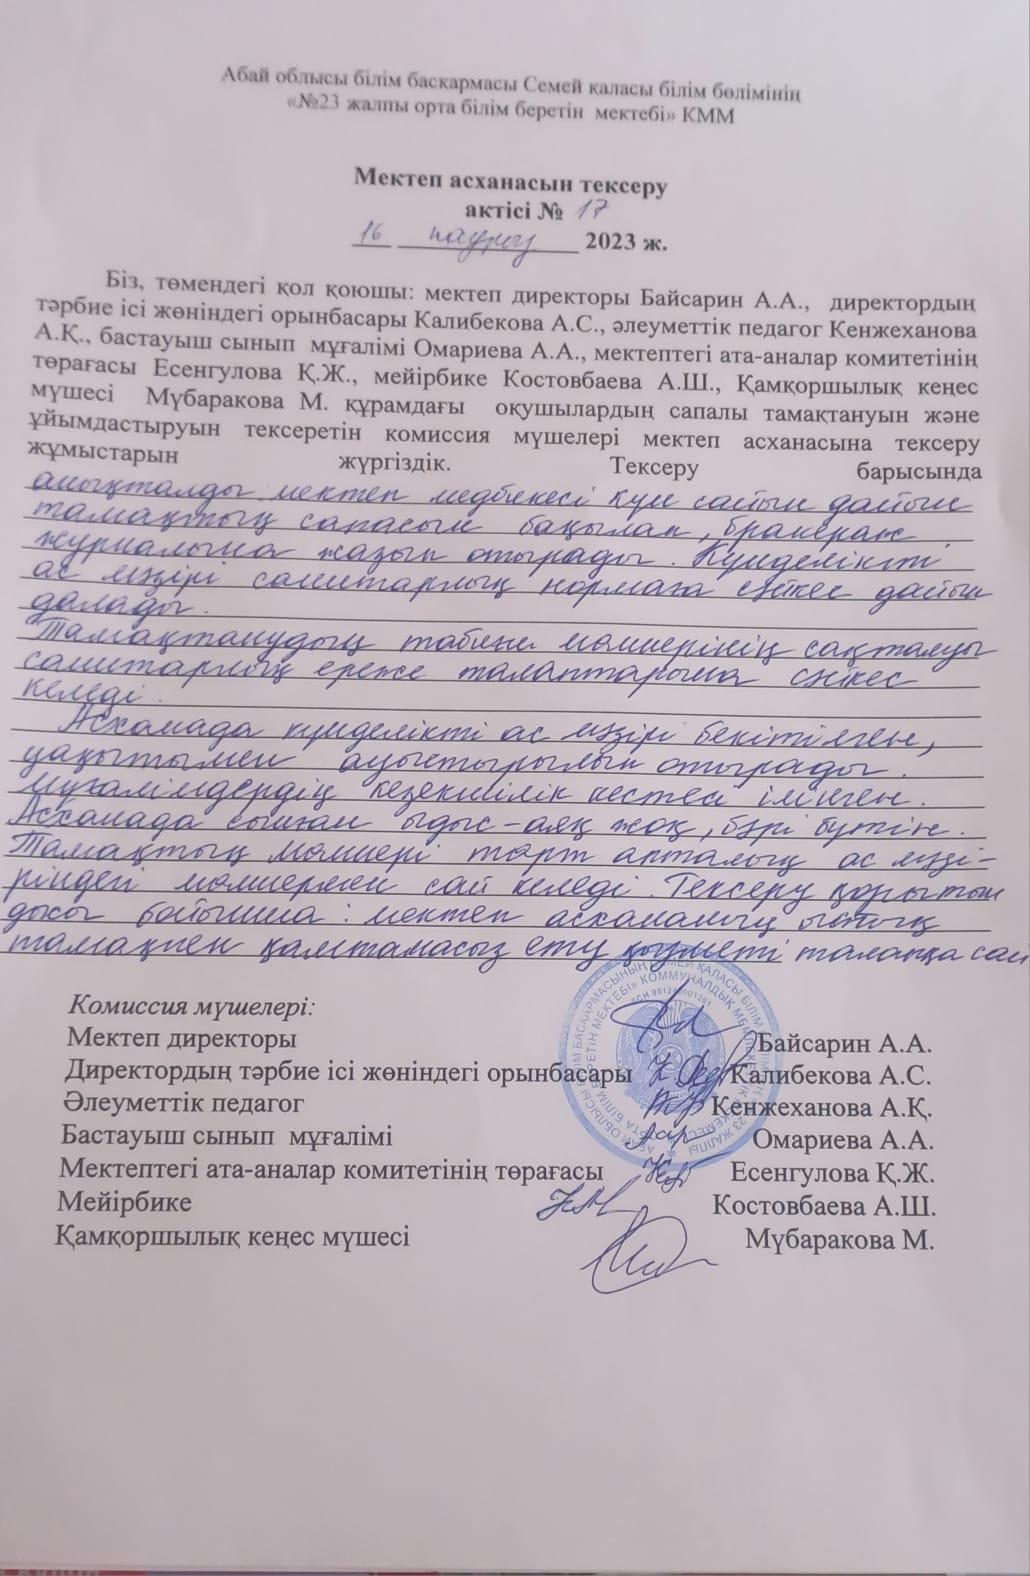 Абай облысы білім басқармасы Семей қаласы білім бөлімінің
«№23 жалпы орта білім беретін мектебі» КММ
Мектеп асханасын тексеру
актісі № 17
16 наурыз 2023 ж.
Біз, төмендегі қол қоюшы: мектеп директоры Байсарин А.А., директордың
тәрбие ісі жөніндегі орынбасары Калибекова А.С., әлеуметтік педагог Кенжеханова
А.Қ., бастауыш сынып мұғалімі Омариева А.А., мектептегі ата-аналар комитетінің
төрағасы Есенгулова Қ.Ж., мейірбике Костовбаева А.Ш., Қамқоршылық кеңес
мүшесі Мүбаракова М. құрамдағы оқушылардың сапалы тамақтануын және
ұйымдастыруын тексеретін комиссия мүшелері мектеп асханасына тексеру
жұмыстарын жүргіздік. Тексеру барысында
анықталды мектеп медбикесі күн сайын дайын
тамақтың сапасын бақылап, бракераж
журналына жазып отырады. Күнделікті
ас мәзірі санитарлық нормаға сәйкес дайын
далады.
Тамақтанудың табиғи мөлшерінің сақталуы
санитарлық ереже талаптарына сәйкес
келеді.
Асханада күнделікті ас мәзірі бекітілген,
уақытымен ауыстырылып отырады.
Мұғалімдердің кезекшілік кестесі ілінген.
Асханада сынған ыдыс-аяқ жоқ, бәрі бүтін.
Тамақтың мөлшері төрт апталық ас мәзі-
ріндегі мөлшермен сай келеді. Тексеру қорытын
дысы бойынша: мектеп асхананың ыстық
тамақпен қамтамасыз ету қызметі талапқа сай
Комиссия мүшелері:
Мектеп директоры Байсарин А.А.
Директордың тәрбие ісі жөніндегі орынбасары Калибекова А.С.
Әлеуметтік педагог Кенжеханова А.Қ.
Бастауыш сынып мұғалімі Омариева А.А.
Мектептегі ата-аналар комитетінің төрағасы Есенгулова Қ.Ж.
Мейірбике Костовбаева А.Ш.
Қамқоршылық кеңес мүшесі Мүбаракова М.